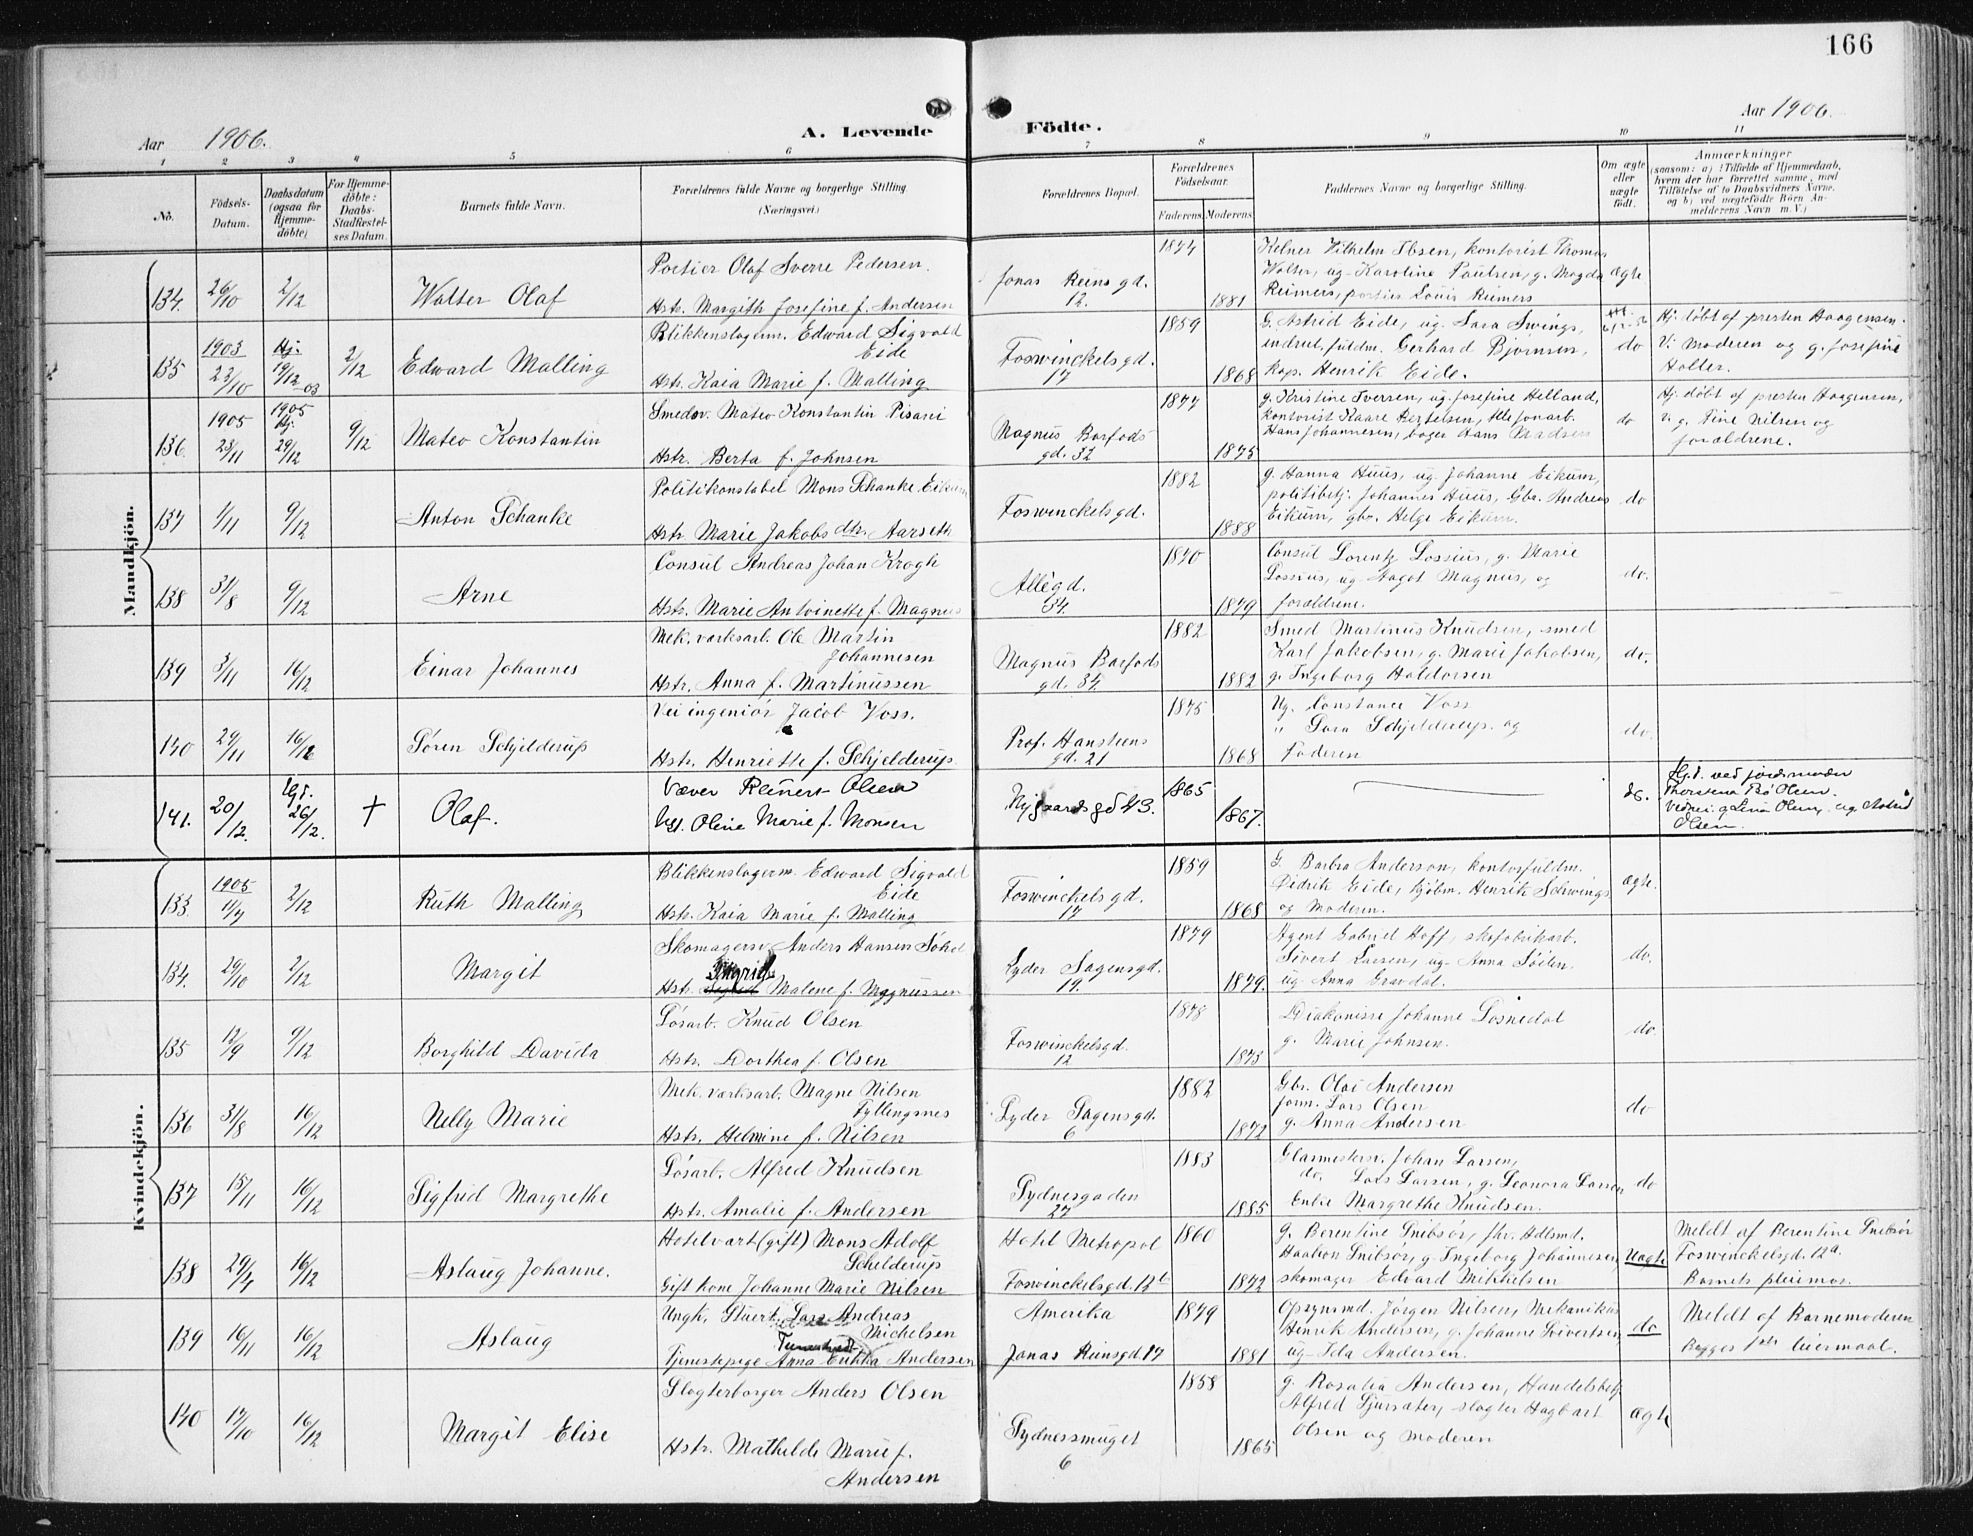 166
Aar 1906.
A. Levende Födte.
Aar 1906.
1 2 3 4 5 6 7 8 9 10 11
No.
Födsels-Datum.
Daabsdatum (ogsaa for Hjemme-döbte)
For Hjemme-döbte: Daabs-Stadfæstel-ses Datum.
Barnets fulde Navn.
Forældrenes fulde Navne og borgerlige Stilling.
(Næringsvei.)
Forældrenes Bopæl.
Forældrenes Födselsaar.
Faderens. Moderens.
Faddernes Navne og borgerlige Stilling.
Om ægte eller uægte födt.
Anmærkninger
(saasom: a) i Tilfælde af Hjemmedaab, hvem der har forrettet samme, med Tilföielse af to Daabsvidners Navne, og b) ved uægtefödte Börn An-melderens Navn m. V.)
Mandkjön.
134. 26/10 2/12 Walter Olaf
Portier Olaf Sverre Pedersen.
Hstr. Margith Josefine f. Andersen
Jonas Reins gd. 12.
1874 1881
Kelner Wilhelm Ibsen, kontorist Thomas
Walter, ug. Karoline Paulsen, g. Magda
Reimers, portier Louis Reimers
ægte
135 1903 23/10 Hj. 19/12 03 2/12 Edward Malling
Blikkenslagerm. Edward Sigvald
Eide
Hstr. Kaia Marie f. Malling
Foswinckelsgd. 17
1859 1868
G. Astrid Eide, ug. Sara Swings,
fuldm. Gerhard Bjørnsen,
kap. Henrik Eide.
do
Hj. døbt af presten Haagensen.
V: Moderen og g. Josefine
Holter.
136 1905 23/11 1905 Hj. 29/12 9/12 Mateo Konstantin
Smedsv. Mateo Konstantin Pisani
Hstr. Berta f. Johnsen
Magnus Barfods gd. 32
1877 1875
g. Kristine Iversen, ug. Josefine Helland,
kontorist Kaare Bertelsen,
Hans Johannesen, bager Hans Madsen
do
Hj. døbt af presten Haagensen,
v. g. Tine Nilsen og
forældrene.
137 1/11 9/12 Anton Schanke
Politikonstabel Mons Schanke Eikum
Hstr. Marie Jakobsdtr. Aarseth
Foswinckelsgd.
1882 1888
g. Hanna Huus, ug. Johanne Eikum,
politibetj. Johannes Huus, Gbr. Andreas
Eikum, gbr. Helge Eikum.
do
138 31/8 9/12 Arne
Consul Andreas Johan Krogh
Hstr. Marie Antoinette f. Magnus
Allégd. 34
1870 1879
Consul Lorentz Lossius, g. Marie
Lossius, ug. Aagot Magnus, og
forældrene.
do.
139 3/11 16/12 Einar Johannes
Mek. værksarb. Ole Martin
Johannesen
Hstr. Anna f. Martinussen
Magnus Barfods gd. 34.
1882 1882
Smed Martinus Knudsen, smed
Karl Jakobsen, g. Marie Jakobsen,
g. Ingeborg Haldorsen
do.
140 29/11 16/12 Søren Schjelderup
Vei ingeniør Jacob Voss.
Hstr. Henriette f. Schjelderup.
Prof. Hansteens gd. 21
1875 1868
Ug. Constance Voss
" Sara Schjelderup. og
Faderen
do.
141. 20/12. Hjd. 26/12. † Olaf.
Væver Reinert Olsen
Hst. Oline Marie f. Monsen
Nygaardsgd 43.
1865 1867.
do.
Hjd. ved jordmoder
Olsen.
ug. Astrid
Olsen.
Kvindekjön.
133 1905 11/7 2/12 Ruth Malling
Blikkenslagerm. Edward Sigvald
Eide
Hstr. Kaia Marie f. Malling
Foswinckelsgd. 17
1859 1868
G. Barbra Anderson, kontorfuldm.
Didrik Eide, kjøbm. Henrik Schwings
og Moderen.
ægte.
134. 29/10 2/12 Margit
Skomagersv. Anders Hansen
Hstr. Ingrid Malene f. Magnussen
Lyder Sagensgd. 19.
1879 1879.
Agent Gabriel Hoff, skofabrikarb.
Sivert Larsen, ug. Anna
ug. Anna Gravdal.
do.
135 12/9 9/12 Borghild Davida
Løsarb. Knud Olsen
Hstr. Dorthea f. Olsen
Foswinckelsgd. 12
1878 1873
Diakonisse Johanne Losnedal
g. Marie Johnsen.
do.
136 31/8 16/12 Nelly Marie
Mek. værksarb. Magne Nilsen
Fyllingsnes
Hstr. Helmine f. Nilsen
Lyder Sagensgd. 6
1882 1872
Gbr. Olai Andersen
form. Lars Olsen
g. Anna Andersen
do
137 15/11 16/12 Sigfrid Margrethe
Løsarb. Alfred Knudsen
Hstr. Amalie f. Andersen
Sydnesgaden 27
1883 1885
Glarmestersv. Johan Larsen,
do. Lars Larsen, g. Leonora Larsen
Enke Margrethe Knudsen.
do
138 29/4 16/12 Aslaug Johanne.
Hotelvært (gift) Mons Adolf
Schelderup
Gift kone Johanne Marie Nilsen
Hotel Metropol
Foswinckelsgd. 12
1860 1872
g. Berentine Snibsør, fhv. Hdlsmd.
Haakon Snibsør, g. Ingeborg Johannesen,
skomager Edvard Mikkelsen
Uægte
Meldt af Berentine Snibsør
Foswinckelsgd. 12a.
Barnets pleiemor.
139 16/11 16/12 Aslaug
Ungk. Stuert Lars Andreas
Michelsen
Tjenestepige Anna Erikka Andersen
Amerika
Jonas Reinsgd. 17
1879 1881
Opsynsmd. Jørgen Nilsen, Mekanikus
Henrik Andersen, g. Johanne Sivertsen,
ug. Ida Andersen.
do
Meldt af Barnemoderen
Begges 1ste leiermaal.
140 17/10 16/12 Margit Elise
Slagterborger Anders Olsen
Hstr. Mathilde Marie f.
Andersen
Sydnessmuget 6
1858 1865
g. Rosalia Andersen, Handelsbetj.
Alfred Sjursæter, slagter Hagbart
Olsen og Moderen
ægte